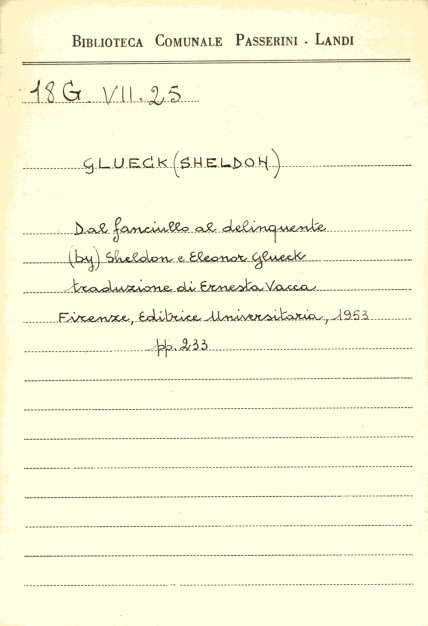 BIBLIOTECA COMUNALE PASSERINI - LANDI
18G. VII. 25
GLUECK (SHELDON)
Dal fanciullo al delinquente
(by) Sheldon e Eleonor Glueck
traduzione di Ernesta Vacca
Firenze, Editrice Universitaria, 1953
pp. 233